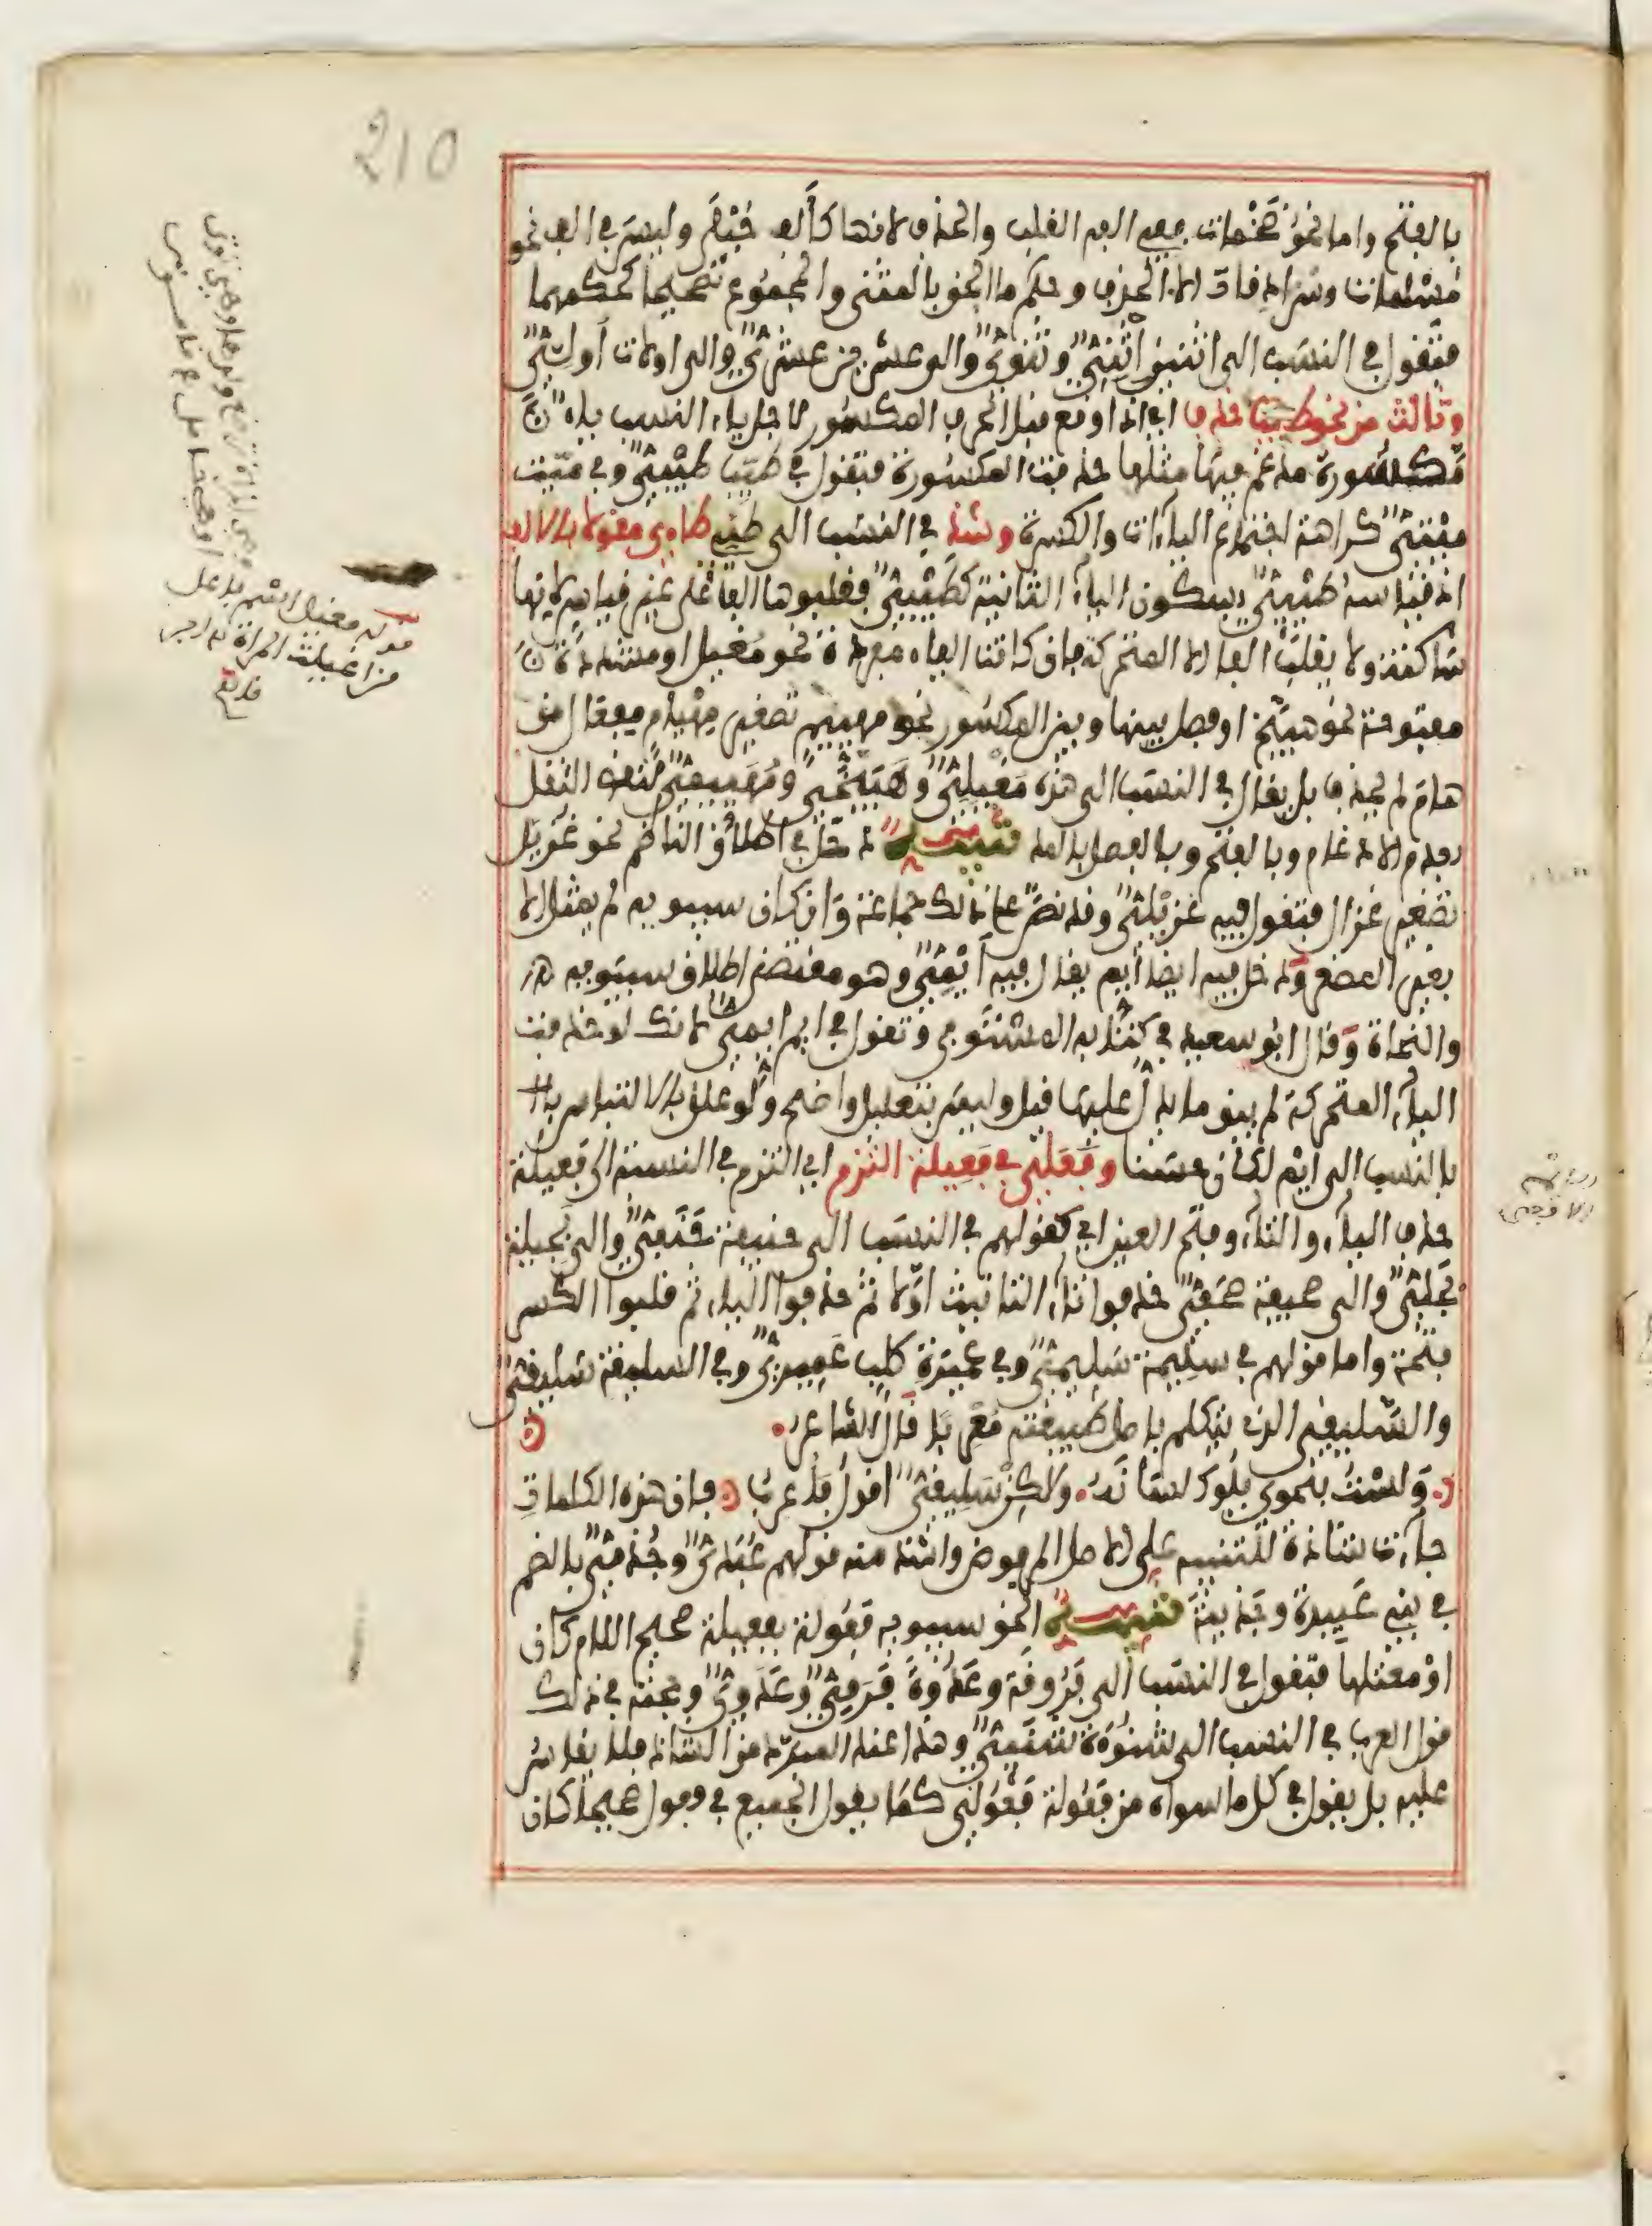 210
بالفتح واما نحو ضخمات ففي الفه القلب والحذف لانها كألف حبلى وليس في الف نحو
مسلمات وسرادقات الا الحذف وحكم ما الحق بالمثنى والمجموع تصحيحا كحكمهما
فتقول في النسب الى اثنين اثنيّ وثنويّ والى عشرين عشريّ والى اولات أوليّ
وثالث من نحو طيب حذف اي اذا وقع قبل الحرف المكسور لاجل ياء النسب ياء
مكسورة مدغم فيها مثلها حذفت المكسورة فتقول في طيّب طيْبيّ وفي ميّت
ميْتيّ كراهة اجتماع الياءات والكسرة وشذ في النسب الى طيئ طاءي مقولا بالالف
اذ قياسه طيْئيّ بسكون الياء الثانية كطيْبيّ فقلبوها الفا على غير قياس لانها
ساكنة ولا يقلب الفا الا المتحركة فان كانت الياء مفردة نحو مغيل او مشددة
مفتوحة نحو هبيّخ او فصل بينها وبين المكسور نحو مهييم تصغير مهيام مفعال من
هام لم تحذف بل يقال في النسب الى هذه مغيليّ وهبيّخيّ ومهييميّ لنقص الثقل
بعدم الادغام وبالفتح وبالفصل بالمد تنبيه دخل في اطلاق الناظم نحو غزيّل
تصغير غزال فتقول فيه غزيْليّ وقد نص على ذلك جماعة وان كان سيبويه لم يمثل الا
بغير المصغر ودخل فيه ايضا أيم يقال فيه أيْميّ وهو مقتضى اطلاق سيبويه
والنحاة وقال ابو سعيد في كتابه المستوفى وتقول في ايم ايميّ لانك لو حذفت
الياء المتحركة لم يبق ما يدل عليها قيل وليس بتعليل واضح ولو علل بالالتباس
بالنسب الى ايْم لكان حسنا وفعليّ في فعيلة التزم اي التزم في النسبة الى فعيلة
حذف الياء والتاء وفتح العين اي كقولهم في النسب الى حنيفة حنفيّ والى بجيلة
بجليّ والى صحيفة صحفيّ حذفوا تاء التانيث اولا ثم حذفوا الياء ثم قلبوا الكسر
فتحة واما قولهم في سليمة سليميّ وفي عميرة كلب عميريّ وفي السليقة سليقيّ
والسليقي الذي يتكلم باصل طبيعته معربا قال الشاعر
ولست بنحوي يلوك لسانه ولكن سليقيّ اقول فأعرب فان هذه الكلمات
جاءت شاذة للتنبيه على الاصل المرفوض واشذ منه قولهم عبديّ وجذميّ بالضم
في بني عبيدة وجذيمة تنبيه الحق سيبويه فعولة بفعيلة صحيح اللام كان
او معتلها فتقول في النسب الى فروقة وعدوة فرقيّ وعدويّ وحجته في ذلك
قول العرب في النسب الى شنوءة شنئيّ وهذا عند المبرد من الشاذ فلا يقاس
عليه بل يقول في كل ما سواه من فعولة فعوليّ كما يقول الجميع في فعول صحيحا كان
قوله مغيل اسم فاعل
من اغيلت المرأة